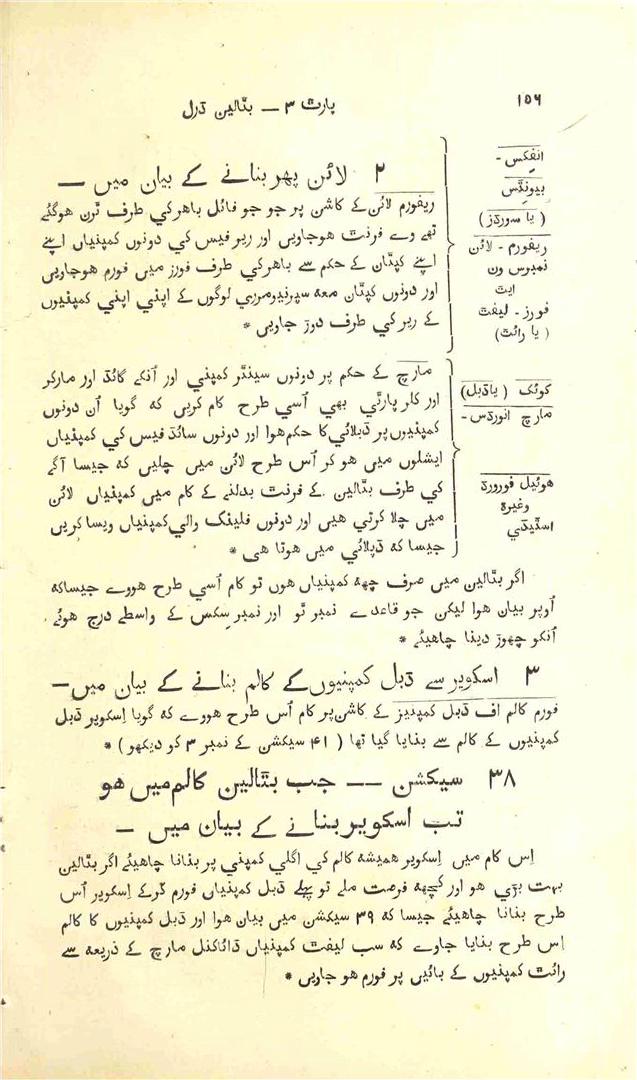 ۱۵۶
پارٹ ۳ — بٹالین ڈرل
انفکس -
بیونٹس
( یا سوردز )
ریفورم - لائن
نمبرس ون
ایٹ
فورز - لیفٹ
( یا رائٹ )
۲ لائن پھر بنانے کے بیان میں —
ریفورم لائن کے کاشن پر جو جو فائل باھر کي طرف ٹرن ھوگئے
تھے وے فرنٹ ھوجاویں اور ریر فیس کي دونوں کمپنیاں اپنے
اپنے کپتان کے حکم سے باھر کي طرف فورز میں فورم ھوجاویں
اور دونوں کپتان معہ سپرنیومرري لوگوں کے اپني اپني کمپنیوں
کے ریر کي طرف دوڑ جاویں *
کوئک ( یا ڈبل )
مارچ انوردس -
ھوئیل فورورڈ
وغیرہ
اسٹیڈي
مارچ کے حکم پر دونوں سینٹر کمپني اور آنکے گائڈ اور مارکر
اور کلر پارٹي بھي اُسي طرح کام کریں کہ گویا اُن دونوں
کمپنیوں پر ڈپلائي کا حکم ھوا اور دونوں سائڈ فیس کي کمپنیاں
ایشلوں میں ھو کر اُس طرح لائن میں چلیں کہ جیسا آگے
کي طرف بٹالین کے فرنٹ بدلنے کے کام میں کمپنیاں لائن
میں چلا کرتي ھیں اور دونوں فلینک والي کمپنیاں ویسا کریں
جیسا کہ ڈپلائي میں ھوتا ھی *
اگر بٹالین میں صرف چھہ کمپنیاں ھوں تو کام اُسي طرح ھووے جیسا کہ
اُوپر بیان ھوا لیکن جو قاعدے نمبر ٹو اور نمبر سِکس کے واسطے درج ھوئے
اُنکو چھوڑ دینا چاھیئے *
۳ اسکویر سے ڈبل کمپنیوں کے کالم بنانے کے بیان میں —
فورم کالم اف ڈبل کمپنیز کے کاشن پر کام اُس طرح ھووے کہ گویا اِسکویر ڈبل
کمپنیوں کے کالم سے بنایا گیا تھا ( ۴۱ سیکشن کے نمبر ۳ کو دیکھو ) *
۳۸ سیکشن —— جب بٹالین کالم میں ھو
تب اسکویر بنانے کے بیان میں —
اِس کام میں اِسکویر ھمیشہ کالم کي اگلي کمپني پر بنانا چاھیئے اگر بٹالین
بہت بڑي ھو اور کچھہ فرصت ملے تو پہلے ڈبل کمپنیاں فورم کرکے اِسکویر اُس
طرح بنانا چاھیئے جیسا کہ ۳۹ سیکشن میں بیان ھوا اور ڈبل کمپنیوں کا کالم
اِس طرح بنایا جاوے کہ سب لیفٹ کمپنیاں ڈائگنل مارچ کے ذریعہ سے
رائٹ کمپنیوں کے بائیں پر فورم ھو جاویں *